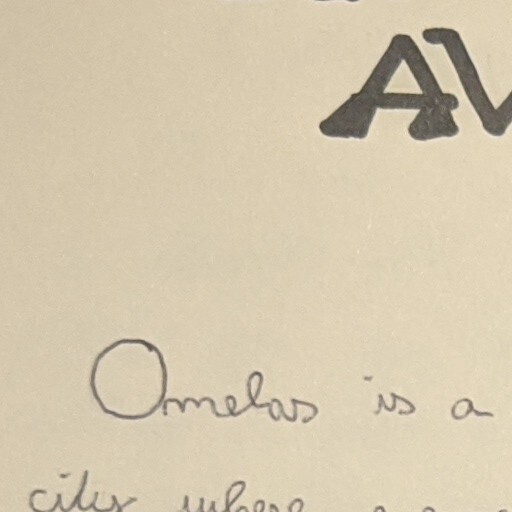 AV
Omelas is a
city where